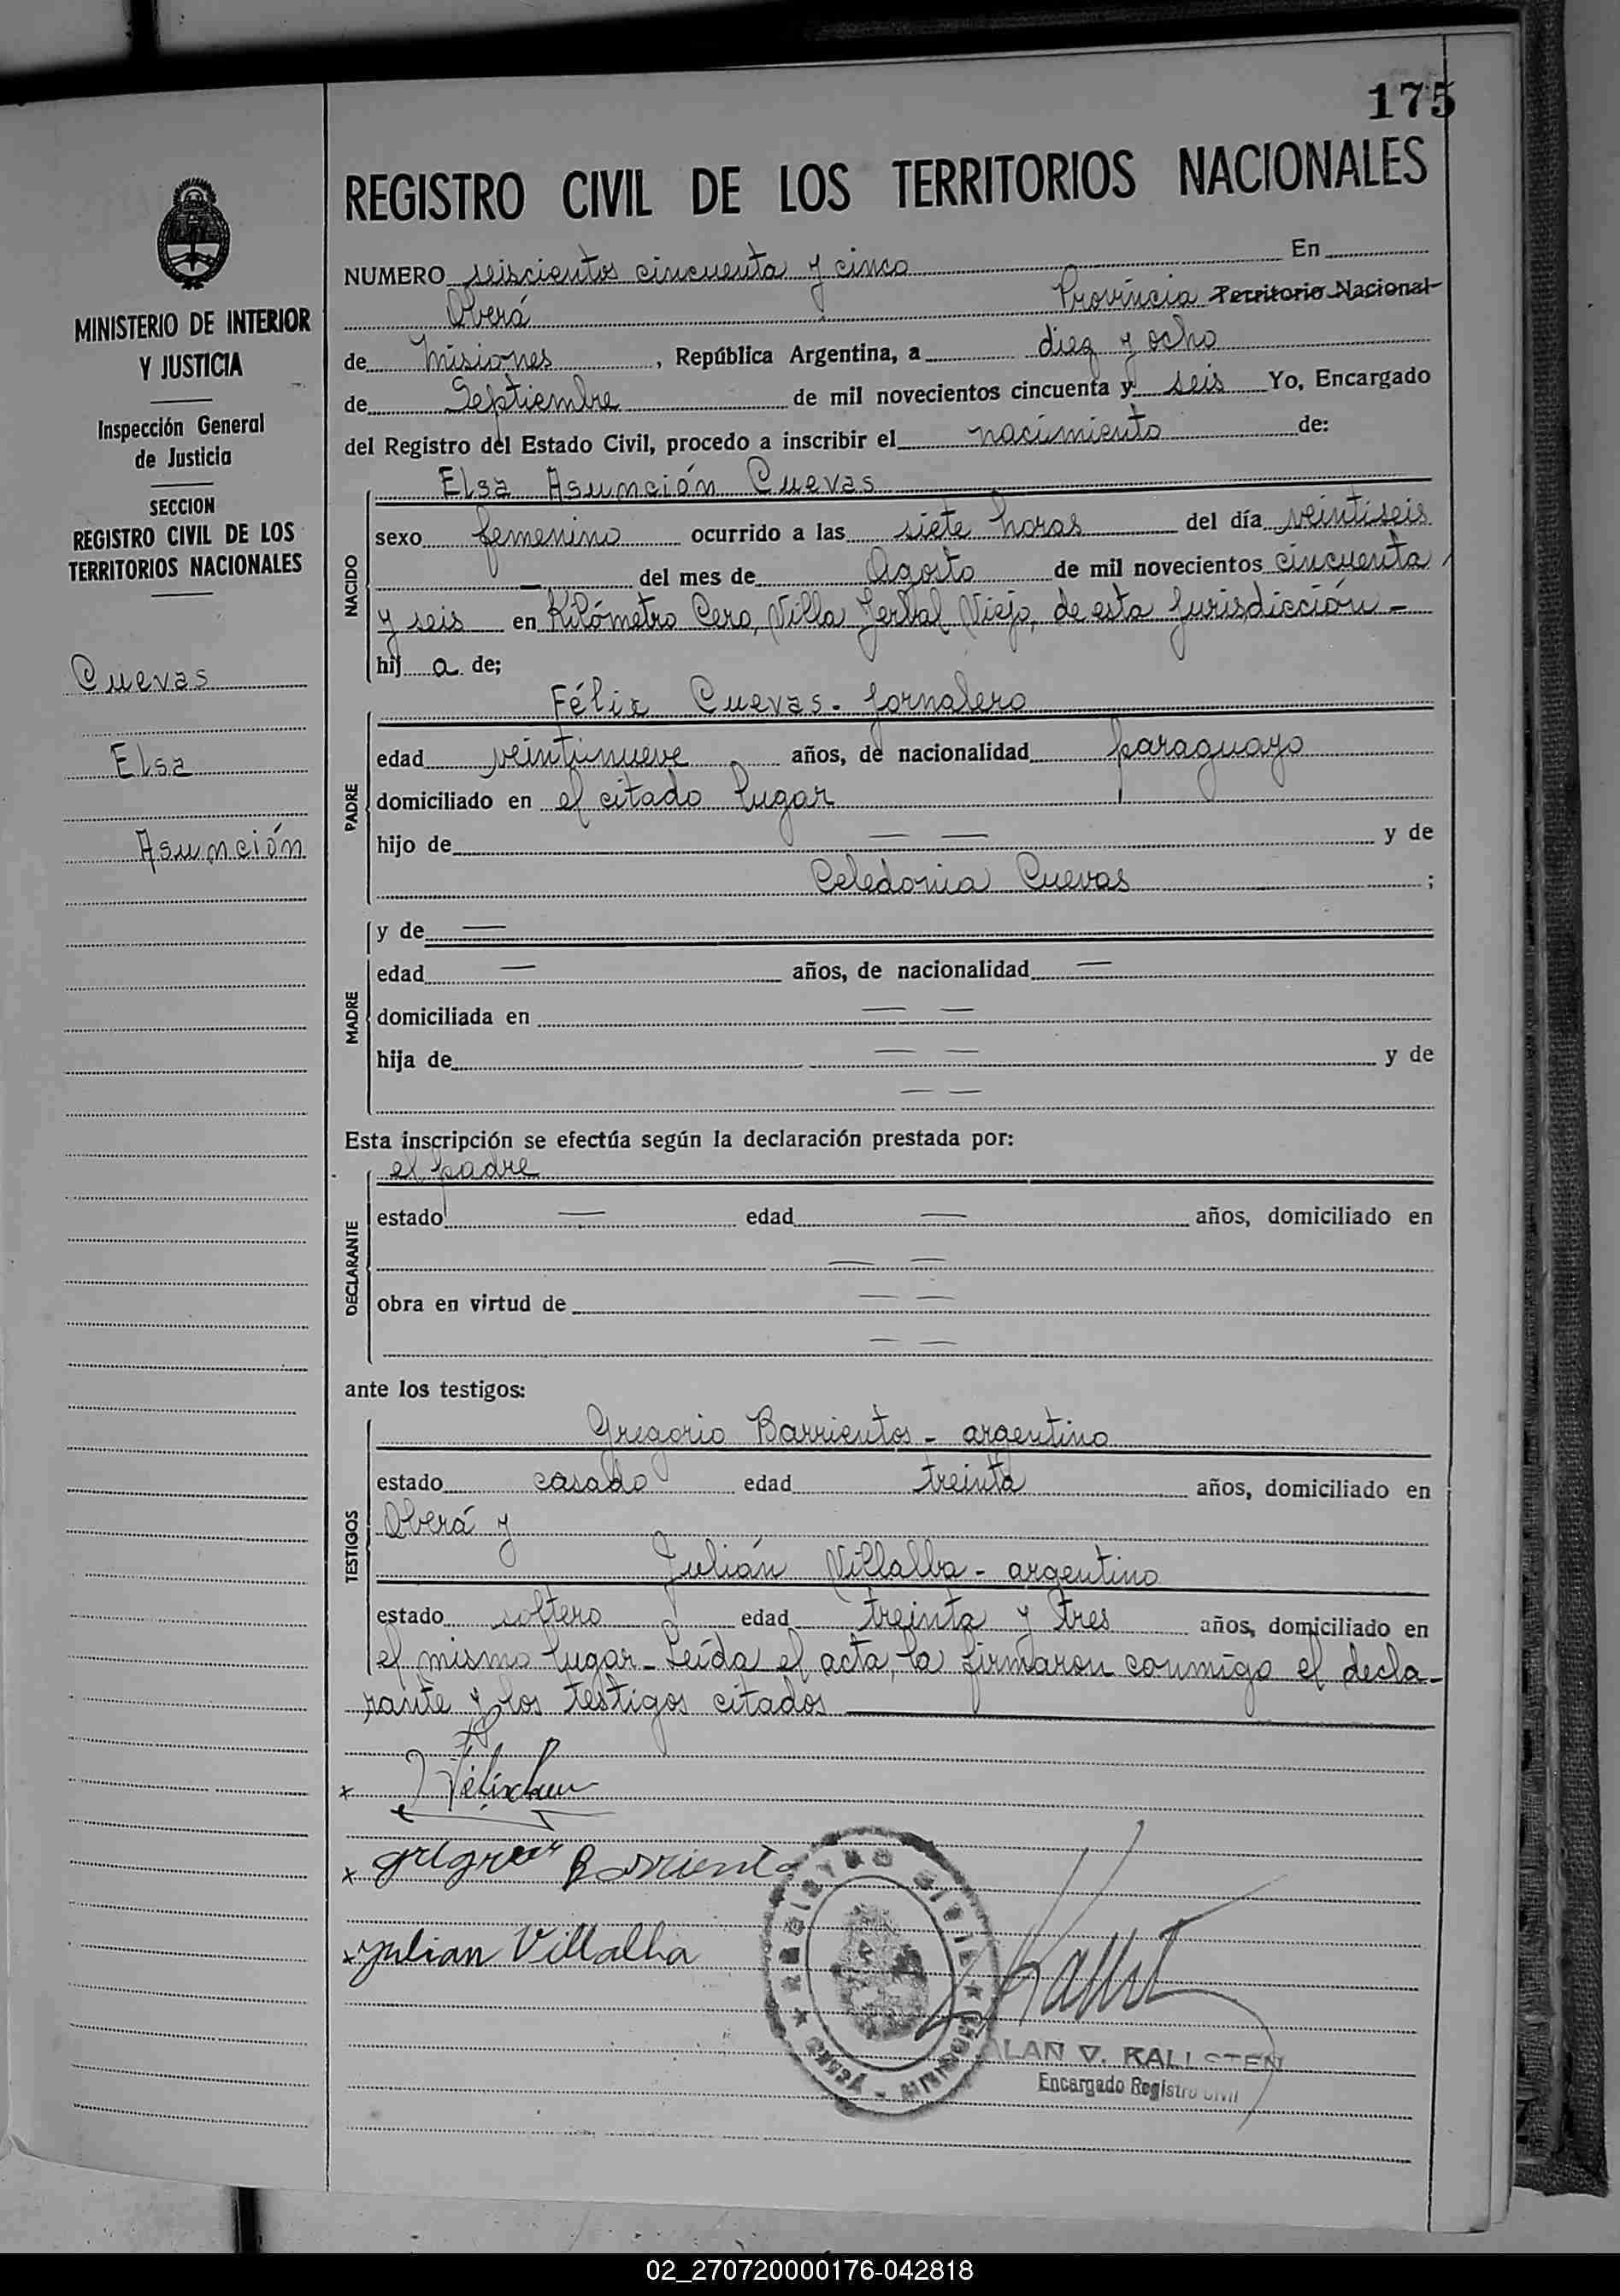 175
REGISTRO CIVIL DE LOS TERRITORIOS NACIONALES
MINISTERIO DE INTERIOR
Y JUSTICIA
Inspección General
de Justicia
SECCION
REGISTRO CIVIL DE LOS
TERRITORIOS NACIONALES
Cuevas
Elsa
Asunción
NUMERO seiscientos cincuenta y cinco En
Oberá Provincia Territorio Nacional
de Misiones, República Argentina, a diez y ocho
de Septiembre de mil novecientos cincuenta y seis Yo, Encargado
del Registro del Estado Civil, procedo a inscribir el nacimiento de:
NACIDO
Elsa Asunción Cuevas
sexo femenino ocurrido a las siete horas del día veintiseis
— del mes de Agosto de mil novecientos cincuenta
y seis en Kilómetro Cero, Villa Yerbal Viejo, de esta Jurisdicción -
hij a de;
PADRE
Félix Cuevas - Jornalero
edad veintinueve años, de nacionalidad paraguayo
domiciliado en el citado lugar
hijo de — — y de
Celedonia Cuevas ;
MADRE
y de —
edad — años, de nacionalidad —
domiciliada en — —
hija de — — y de
— —
Esta inscripción se efectúa según la declaración prestada por:
DECLARANTE
el padre
estado — edad — años, domiciliado en
— —
obra en virtud de — —
— —
ante los testigos:
TESTIGOS
Gregorio Barrientos - argentino
estado casado edad treinta años, domiciliado en
Oberá y
Julián Villalba - argentino
estado soltero edad treinta y tres años, domiciliado en
el mismo lugar - Leída el acta, la firmaron conmigo el decla-
rante y los testigos citados
x Félix
x Barriento
x Julian Villalba
REGISTRO CIVIL ★ MISIONES - OBERÁ ★
ALAN V. KALLSTEN
Encargado Registro Civil
02_270720000176-042818